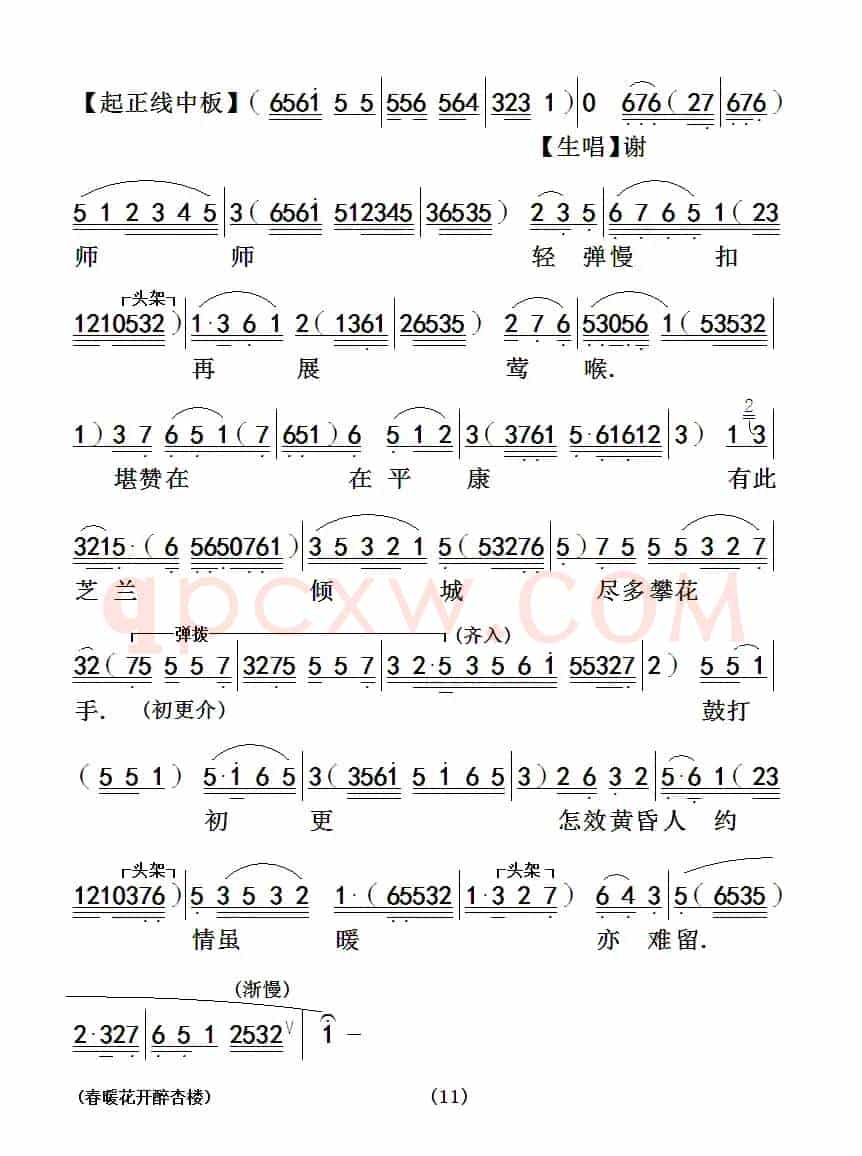 【起正线中板】（6561 5 5 | 556 564 | 323 1）| 0 676（27 | 676）
【生唱】谢
5 1 2 3 4 5 | 3（6561 512345 | 36535）2 3 5 | 6 7 6 5 1（23
师 师 轻 弹慢 扣
头架
1210532）| 1·3 6 1 2（1361 | 26535）2 7 6 | 53056 1（53532 |
再 展 莺 喉.
2
1）3 7 6 5 1（7 | 651）6 5 1 2 | 3（3761 5·61612 | 3）1 3 |
堪赞在 在 平 康 有此
3215·（6 5650761）| 3 5 3 2 1 5（53276 | 5）7 5 5 5 3 2 7 |
芝 兰 倾 城 尽多攀花
qpcxw.COM
弹拨 （齐入）
32（75 5 5 7 | 3275 5 5 7 | 3 2·5 3 5 6 1 55327 | 2）5 5 1 |
手. （初更介） 鼓打
（5 5 1）5·1 6 5 | 3（3561 5·1 6 5 | 3）2 6 3 2 | 5·6 1（23
初 更 怎效黄昏人 约
头架 头架
1210376）| 5 3 5 3 2 1·（65532 | 1·3 2 7）6 4 3 | 5（6535
情虽 暖 亦 难留.
（渐慢）
2·327 | 6 5 1 2532 V | 1 –
（春暖花开醉杏楼） （11）